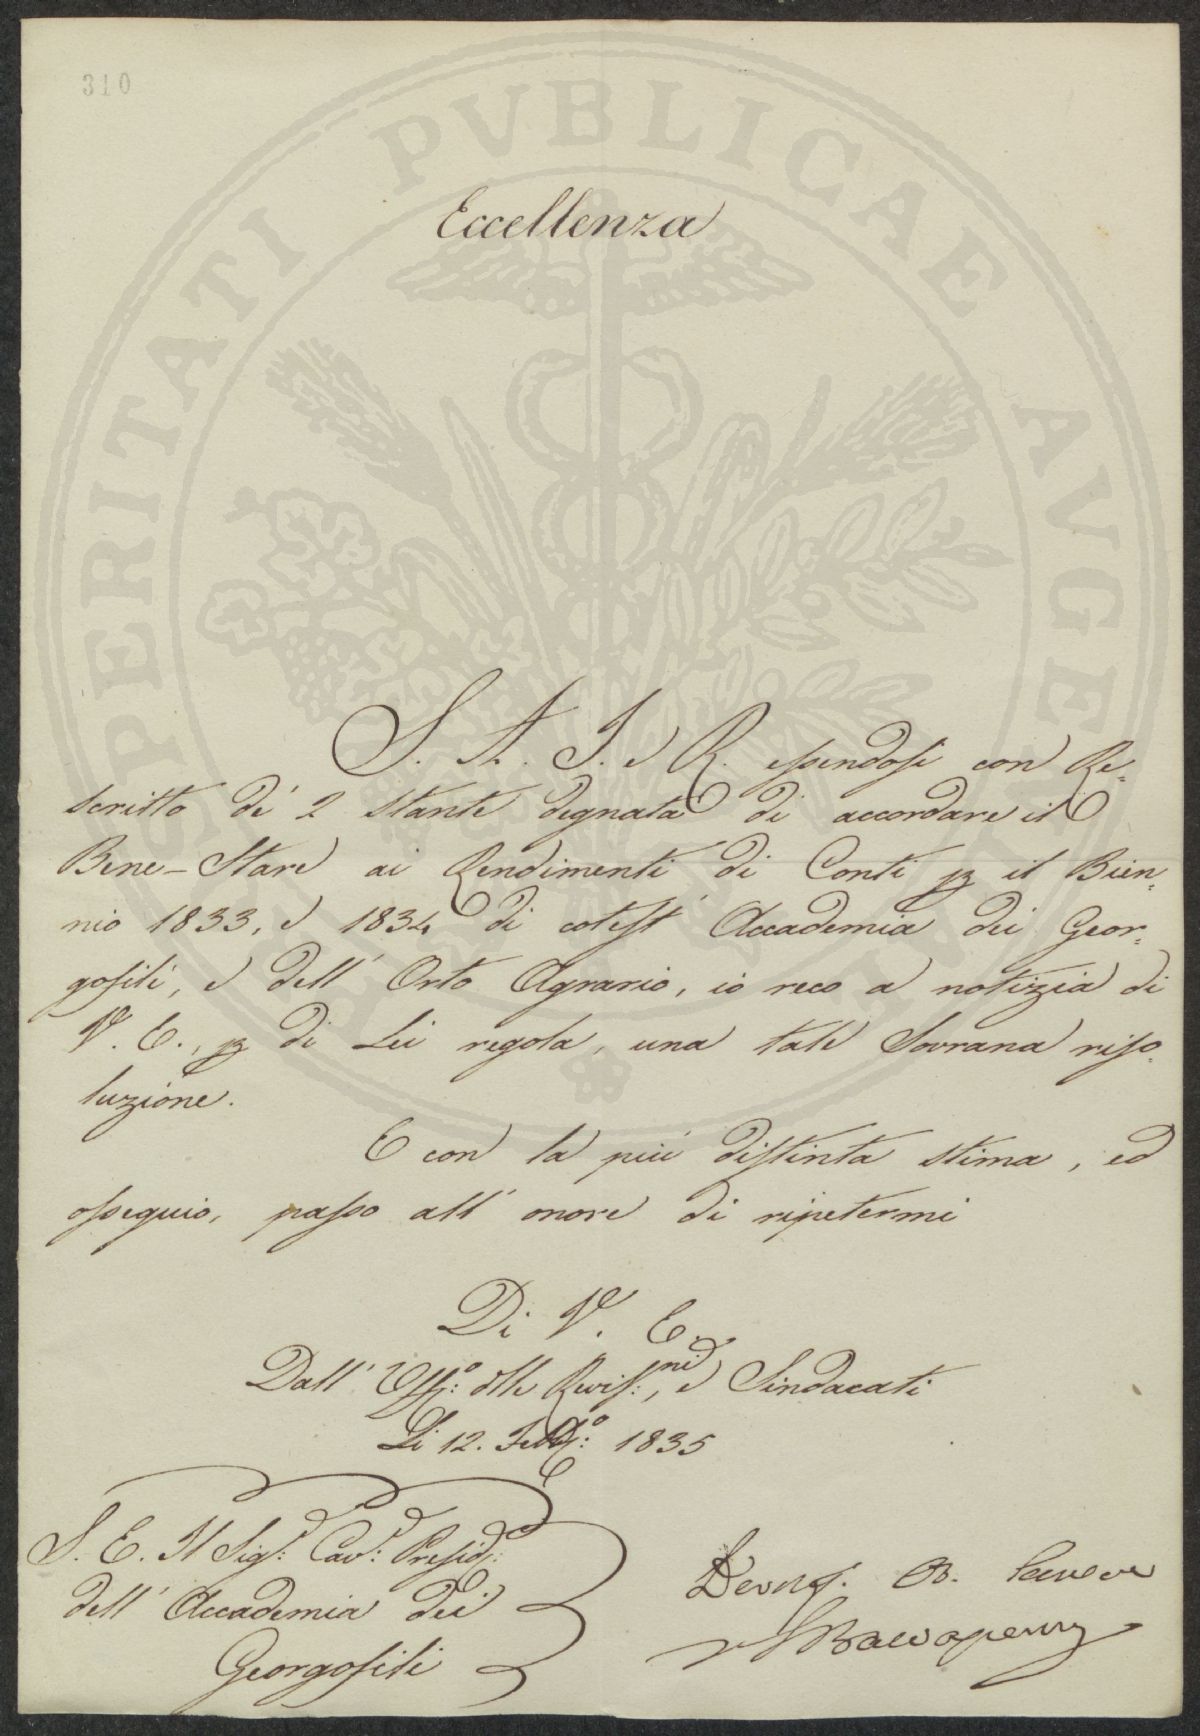 310
PROSPERITATI PVBLICAE AVGENDAE
Eccellenza
S. A. I. e R. essendosi con Re=
scritto de' 2 stante degnata di accordare il
Bene-Stare ai Rendimenti di Conti p il Bien=
nio 1833, e 1834 di cotest' Accademia dei Geor=
gofili, e dell' Orto Agrario, io reco a notizia di
V. E., p di Lei regola, una tale Sovrana riso=
luzione.
E con la più distinta stima, ed
ossequio, passo all' onore di ripetermi
Di V. E.
Dall' Uff:o delle Revis:ni, e Sindacati
Li 12. Febb:o 1835
S. E. Il Sig:r Cav:r Presid:
dell' Accademia dei
Georgofili